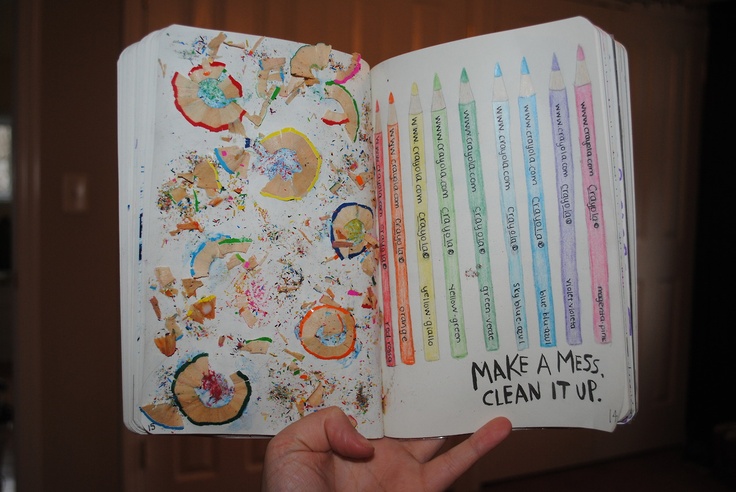 www.crayola.com Crayola® orange
www.crayola.com Crayola® yellow·giallo
www.crayola.com Crayola® yellow·green
www.crayola.com Crayola® green·verde
www.crayola.com Crayola® sky blue·azul
www.crayola.com Crayola® blue·blu·azul
www.crayola.com Crayola® violet·violeta
www.crayola.com Crayola® magenta·pink
MAKE A MESS.
CLEAN IT UP.
15